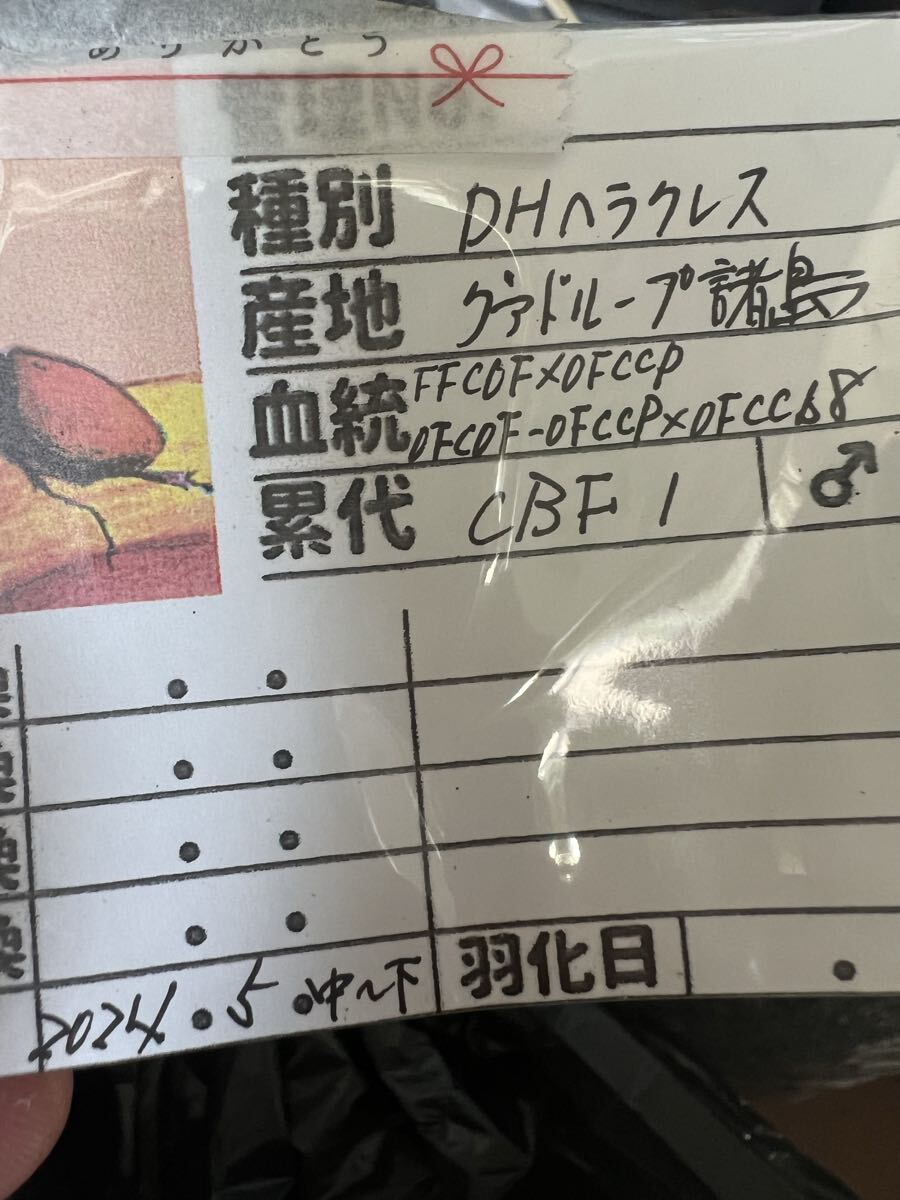 ありがとう
種別 DHヘラクレス
産地 グァドループ諸島
血統 FFCOF×OFCCP
OFCOF-OFCCP×OFCC68
累代 CBF1 ♂
2024.5.中~下 羽化日